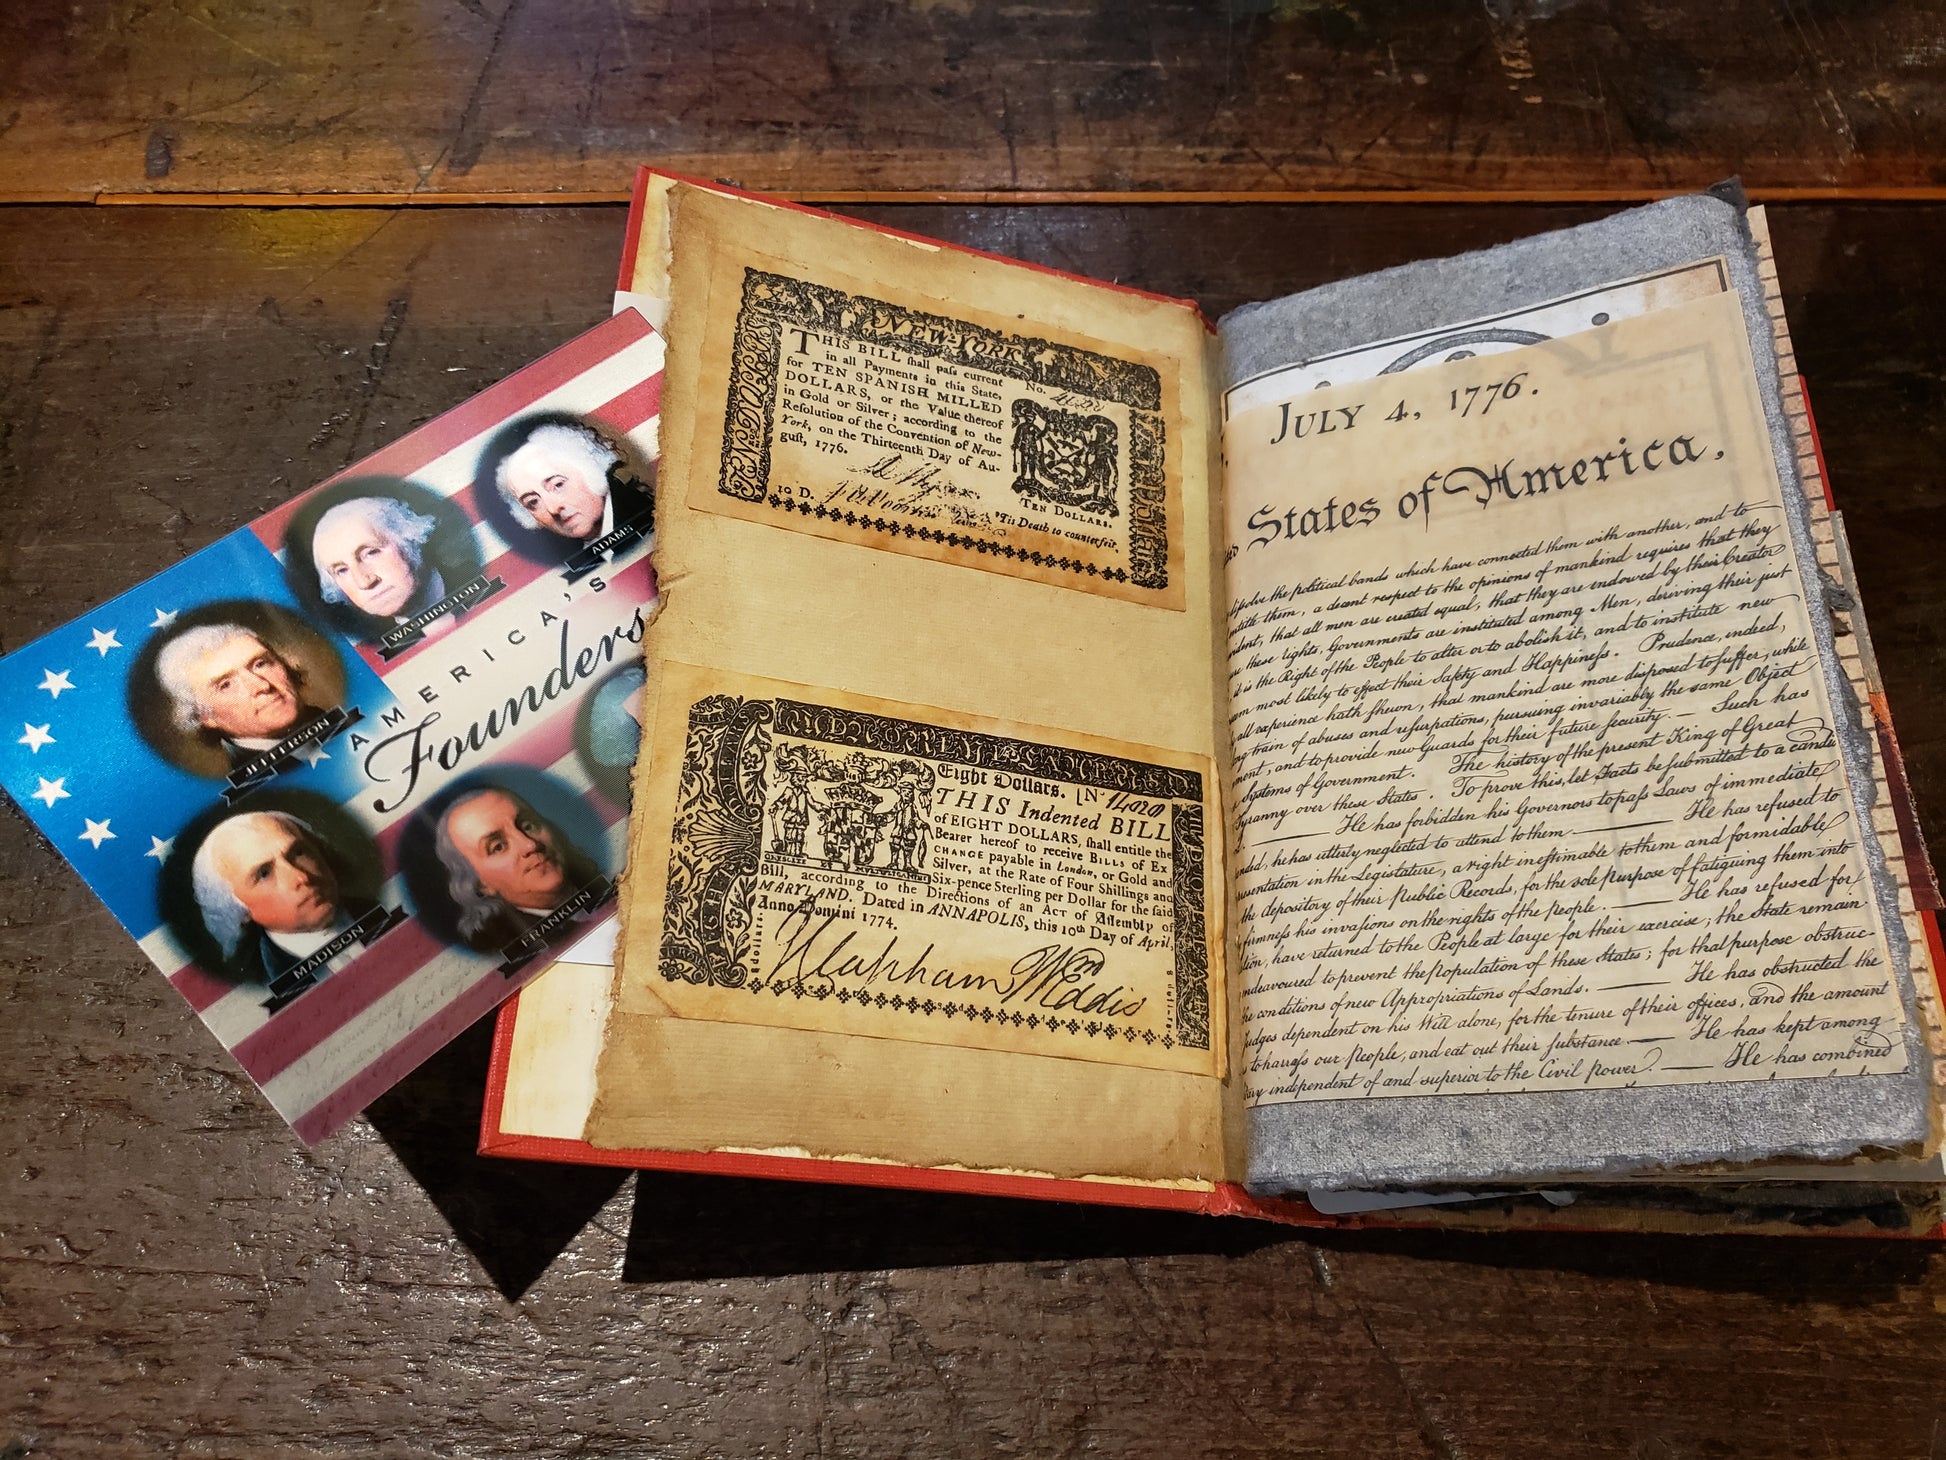 WASHINGTON
ADAMS
JEFFERSON
MADISON
FRANKLIN
AMERICA'S
Founders
NEW-YORK
No.
THIS BILL ſhall paſs current
in all Payments in this State,
for TEN SPANISH MILLED
DOLLARS, or the Value thereof
in Gold or Silver; according to the
Reſolution of the Convention of New-
York, on the Thirteenth Day of Au-
guſt, 1776.
10 D.
TEN DOLLARS.
'Tis Death to counterfeit.
Eight Dollars. [No 14020
THIS Indented BILL
of EIGHT DOLLARS, ſhall entitle the
Bearer hereof to receive BILLS of EX
CHANGE payable in London, or Gold and
Silver, at the Rate of Four Shillings and
Six-pence Sterling per Dollar for the ſaid
Bill, according to the Directions of an ACT of Aſſembly of
MARYLAND. Dated in ANNAPOLIS, this 10th Day of April,
Anno Domini 1774.
Clapham Wm Eddis
JULY 4, 1776.
States of America,
diſsolve the political bands which have connected them with another, and to
entitle them, a decent respect to the opinions of mankind requires that they
dent, that all men are created equal, that they are endowed by their Creator
these rights, Governments are instituted among Men, deriving their just
it is the Right of the People to alter or to abolish it, and to institute new
most likely to effect their Safety and Happineſs. Prudence, indeed,
all experience hath ſhewn, that mankind are more disposed to ſuffer, while
train of abuses and uſurpations, pursuing invariably the same Object
ment, and to provide new Guards for their future ſecurity. — Such has
Systems of Government. The history of the present King of Great
Tyranny over these States. To prove this, let Facts be ſubmitted to a candid
— He has forbidden his Governors to paſs Laws of immediate
ded, he has utterly neglected to attend to them. — He has refused to
sentation in the Legislature, a right ineſtimable to them and formidable
the depository of their Public Records, for the sole purpose of fatiguing them into
firmneſs his invaſions on the rights of the people. — He has refused for
tion, have returned to the People at large for their exercise; the State remain
endeavoured to prevent the population of these States; for that purpose obstruc-
the conditions of new Appropriations of Lands. — He has obstructed the
Judges dependent on his Will alone, for the tenure of their offices, and the amount
to harraſs our people, and eat out their ſubstance. — He has kept among
independent of and superior to the Civil power. — He has combined